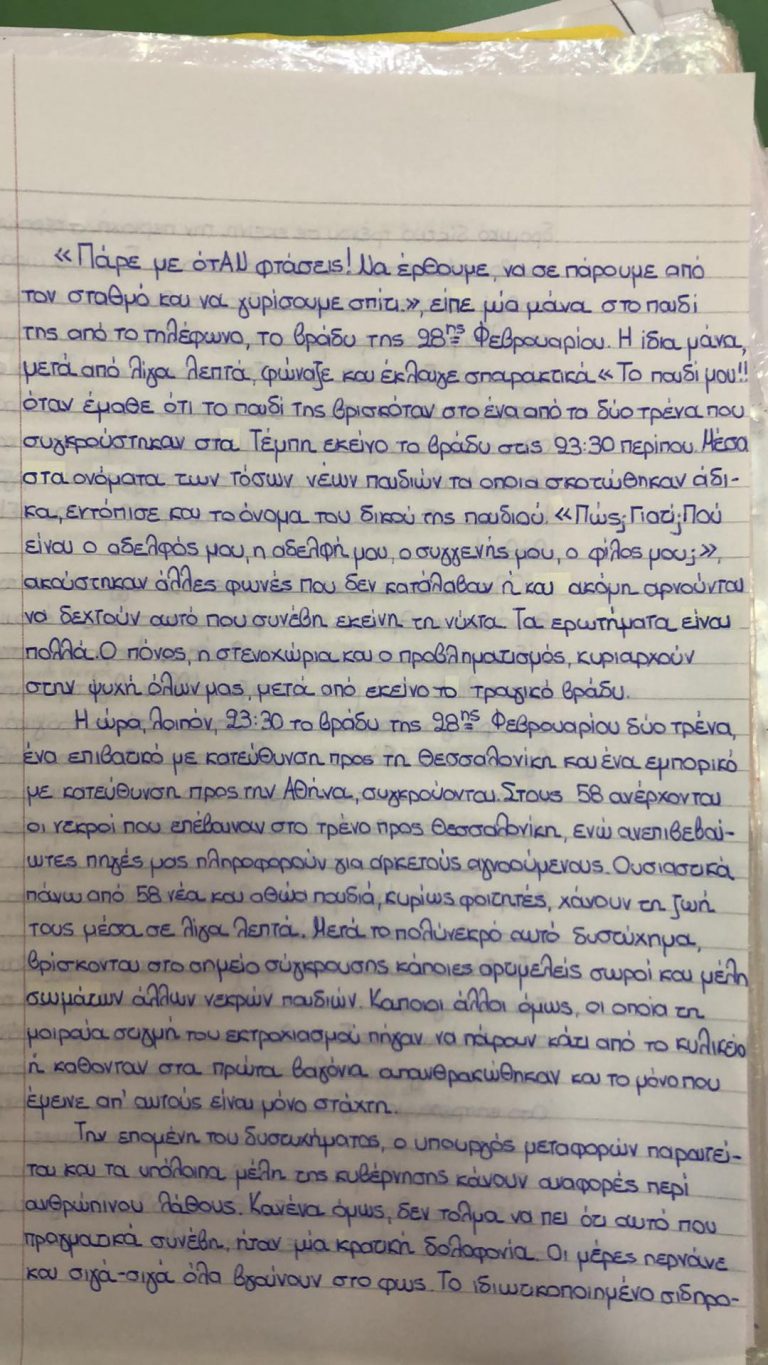 «Πάρε με ότΑΝ φτάσεις! Να έρθουμε, να σε πάρουμε από
τον σταθμό και να γυρίσουμε σπίτι.», είπε μία μάνα στο παιδί
της από το τηλέφωνο, το βράδυ της 28ης Φεβρουαρίου. Η ίδια μάνα,
μετά από λίγα λεπτά, φώναξε και έκλαψε σπαρακτικά «Το παιδί μου!!
όταν έμαθε ότι το παιδί της βρισκόταν στο ένα από τα δύο τρένα που
συγκρούστηκαν στα Τέμπη εκείνο το βράδυ στις 23:30 περίπου. Μέσα
στα ονόματα των τόσων νέων παιδιών τα οποια σκοτώθηκαν άδι-
κα, εντόπισε και το όνομα του δικού της παιδιού. «Πώς; Γιατί; Πού
είναι ο αδελφός μου, η αδελφή μου, ο συγγενής μου, ο φίλος μου;»,
ακούστηκαν άλλες φωνές που δεν κατάλαβαν ή και ακόμη αρνούνται
να δεχτούν αυτό που συνέβη εκείνη τη νύχτα. Τα ερωτήματα είναι
πολλά. Ο πόνος, η στενοχώρια και ο προβληματισμός, κυριαρχούν
στην ψυχή όλων μας, μετά από εκείνο το τραγικό βράδυ.
Η ώρα, λοιπόν, 23:30 το βράδυ της 28ης Φεβρουαρίου δύο τρένα,
ένα επιβατικό με κατεύθυνση προς τη Θεσσαλονίκη και ένα εμπορικό
με κατεύθυνση προς την Αθήνα, συγκρούονται. Στους 58 ανέρχονται
οι νεκροί που επέβαιναν στο τρένο προς Θεσσαλονίκη, ενώ ανεπιβεβαί-
ωτες πηγές μας πληροφορούν για αρκετούς αγνοούμενους. Ουσιαστικά
πάνω από 58 νέα και αθώα παιδιά, κυρίως φοιτητές, χάνουν τη ζωή
τους μέσα σε λίγα λεπτά. Μετά το πολύνεκρό αυτό δυστύχημα,
βρίσκονται στο σημείο σύγκρουσης κάποιες αρτιμελείς σωροί και μέλη
σωμάτων άλλων νεκρών παιδιών. Κάποιοι άλλοι όμως, οι οποία τη
μοιραία στιγμή του εκτροχιασμού πήγαν να πάρουν κάτι από το κυλικείο
ή καθονταν στα πρώτα βαγόνια απανθρακώθηκαν και το μόνο που
έμεινε απ' αυτούς είναι μόνο στάχτη.
Την επομένη του δυστυχήματος, ο υπουργός μεταφορών παραιτεί-
ται και τα υπόλοιπα μέλη της κυβέρνησης κάνουν αναφορές περί
ανθρώπινου λάθους. Κανένα όμως, δεν τολμα να πει ότι αυτό που
πραγματικά συνέβη, ήταν μία κρατική δολοφονία. Οι μέρες περνάνε
και σιγά-σιγά όλα βγαίνουν στο φως. Το ιδιωτικοποιημένο σιδηρο-